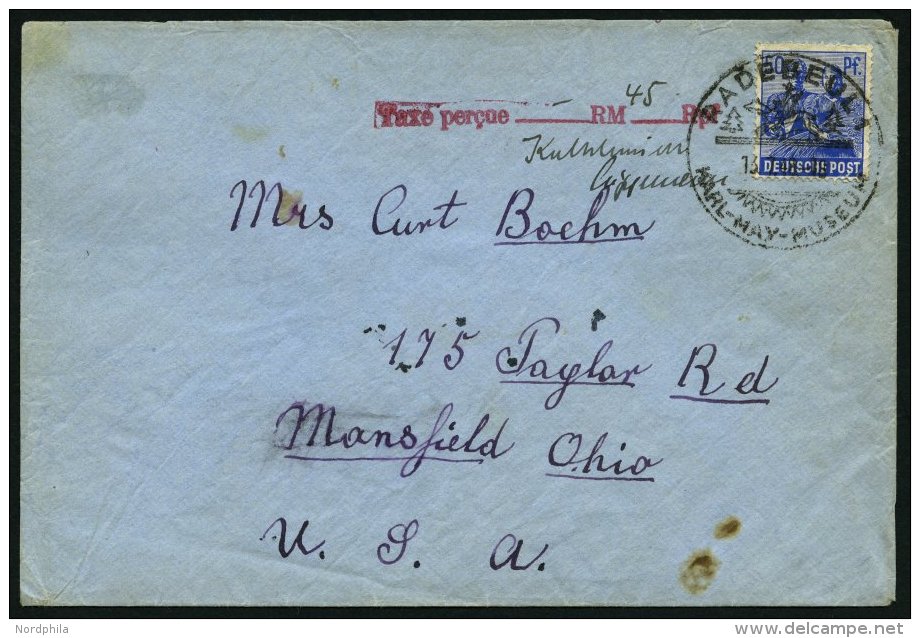 50 Pf.
DEUTSCHE POST
RADEBEUL 1
KARL-MAY-MUSEUM
Taxe perçue — RM 45 Rpf
Mrs Curt Boehm
175 Taylor Rd
Mansfield Ohio
U. S. A.
Nordphila
delcampe.net